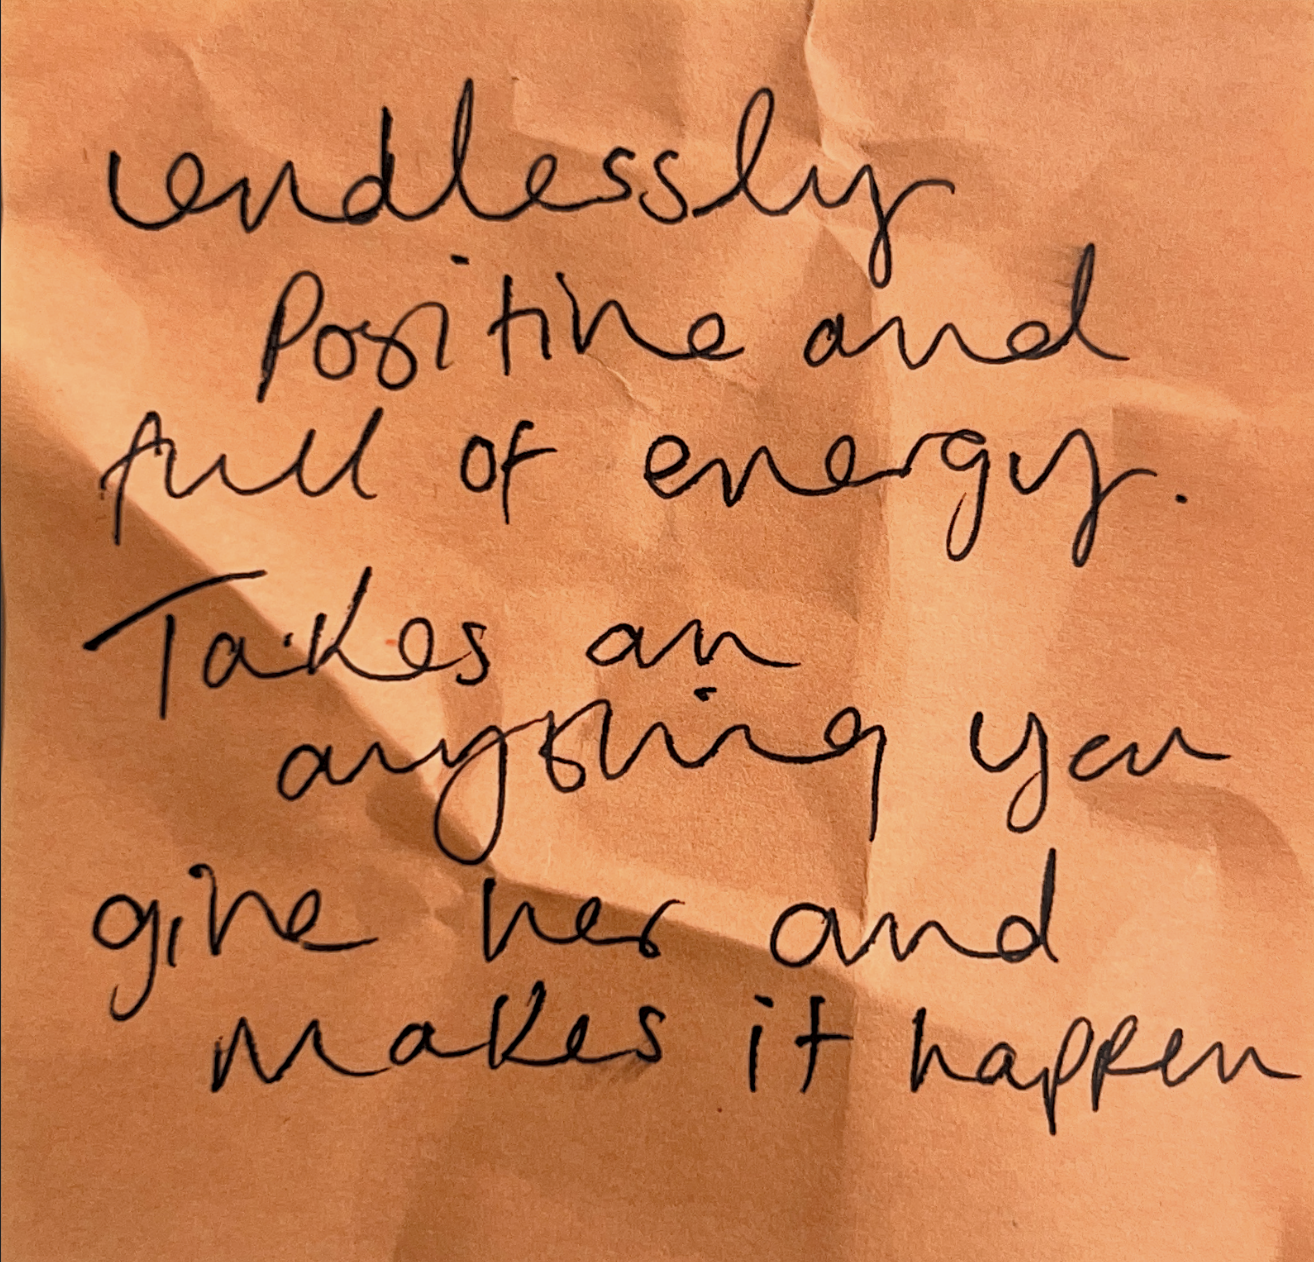 endlessly
Positive and
full of energy.
Takes an
anything you
give her and
makes it happen